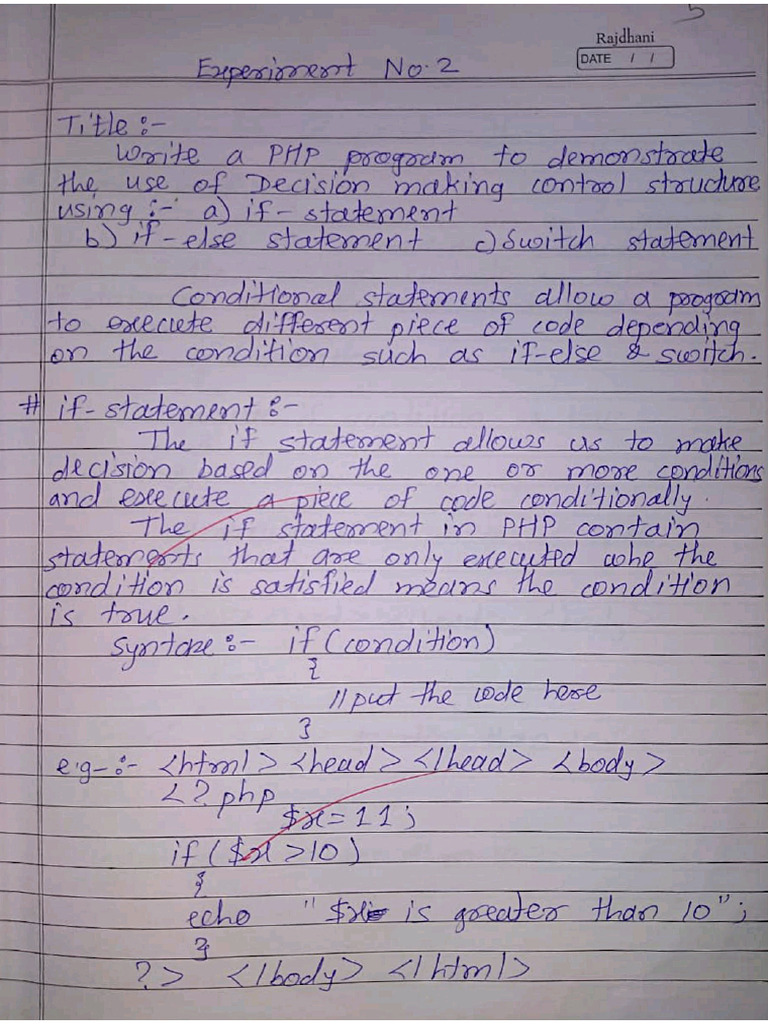 5
Rajdhani
DATE / /
Experiment No.2
Title :-
Write a PHP program to demonstrate
the use of Decision making control structure
using :- a) if-statement
b) if-else statement c) Switch statement
Conditional statements allow a program
to execute different piece of code depending
on the condition such as if-else & switch.
# if-statement :-
The if statement allows us to make
decision based on the one or more conditions
and execute a piece of code conditionally.
The if statement in PHP contain
statements that are only executed whe the
condition is satisfied means the condition
is true.
Syntax :- if (condition)
{
//put the code here
}
e.g-:- <html> <head> </head> <body>
<?php
$x=11;
if ($x>10)
{
echo "$x is greater than 10";
}
?> </body> </html>